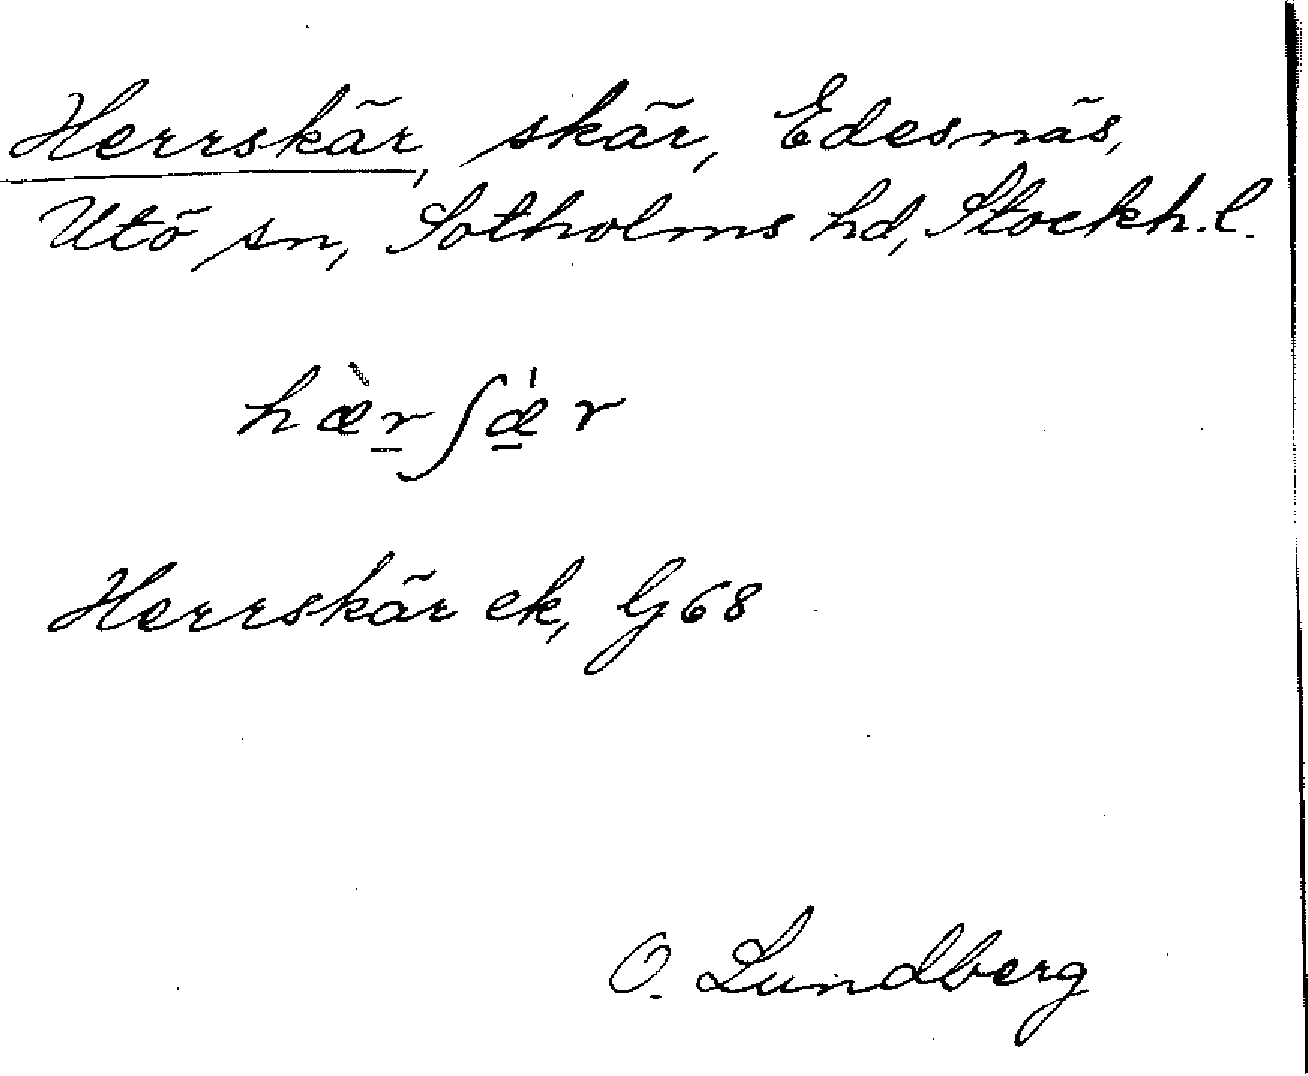 Herrskär, skär, Edesnäs,
Utö sn, Sotholms hd, Stockh. l.
hæ̀r̲ʃæ̲̍r
Herrskär ek, G 68
O. Lundberg